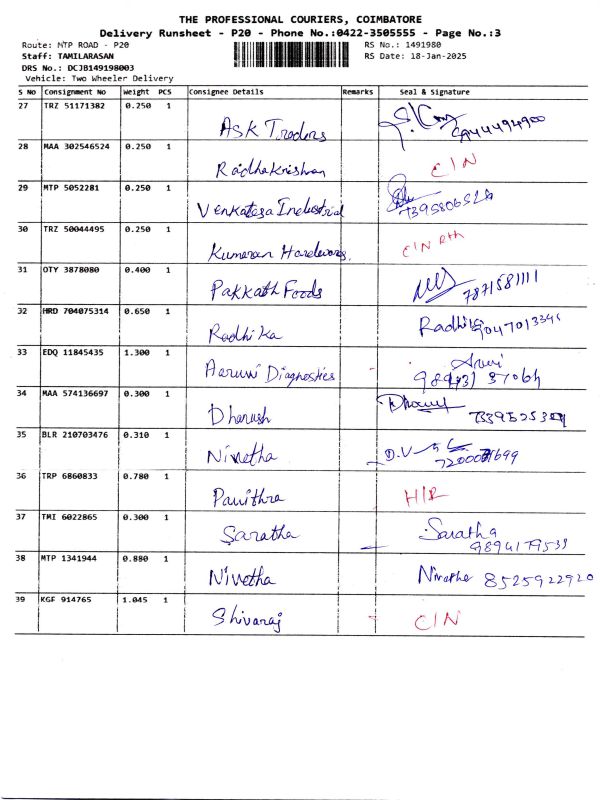 THE PROFESSIONAL COURIERS, COIMBATORE
Delivery Runsheet - P20 - Phone No.:0422-3505555 - Page No.:3
Route: MTP ROAD - P20 RS No.: 1491980
Staff: TAMILARASAN RS Date: 18-Jan-2025
DRS No.: DCJB149198003
Vehicle: Two Wheeler Delivery
S No Consignment No Weight PCS Consignee Details Remarks Seal & Signature
27 TRZ 51171382 0.250 1 Ask Traders
28 MAA 302546524 0.250 1 Radhakrishnan C/N
29 MTP 5052281 0.250 1 Venkatesa Industrial
30 TRZ 50044495 0.250 1 Kumaran Hardwares C/N
31 OTY 3878080 0.400 1 Pakkath Foods 7871581111
32 HRD 704075314 0.650 1 Radhika Radhika
33 EDQ 11845435 1.300 1 Diagnostics
34 MAA 574136697 0.300 1 Dharush
35 BLR 210703476 0.310 1 Nivetha D.V
36 TRP 6860833 0.780 1 Pavithra
37 TMI 6022865 0.300 1 Saratha Saratha
38 MTP 1341944 0.880 1 Nivetha Nivetha 8525922920
39 KGF 914765 1.045 1 Shivaraj C/N